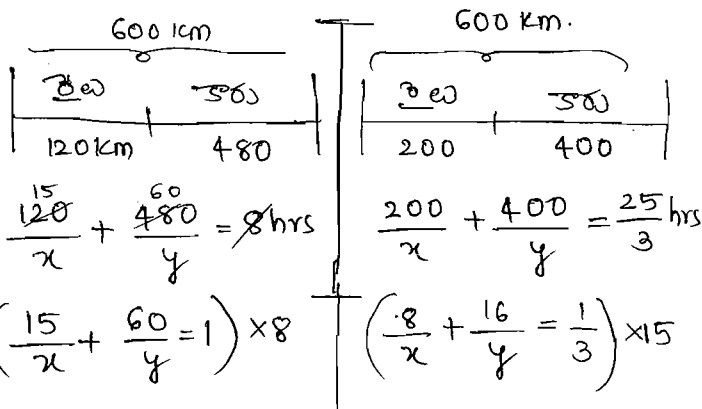 600 km
రైలు కారు
120km 480
15 60
120/x + 480/y = 8hrs
(15/x + 60/y = 1) ×8
600 km.
రైలు కారు
200 400
200/x + 400/y = 25/3 hrs
(8/x + 16/y = 1/3) ×15